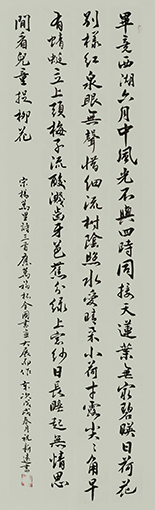 畢竟西湖六月中風光不與四時同接天蓮葉無窮碧映日荷花
別樣紅泉眼無聲惜細流樹陰照水愛晴柔小荷才露尖尖角早
有蜻蜓立上頭梅子流酸濺齒牙芭蕉分綠上窗紗日長睡起無情思
閒看兒童捉柳花
宋楊萬里詩三首應萬福杯全國書畫大展而作